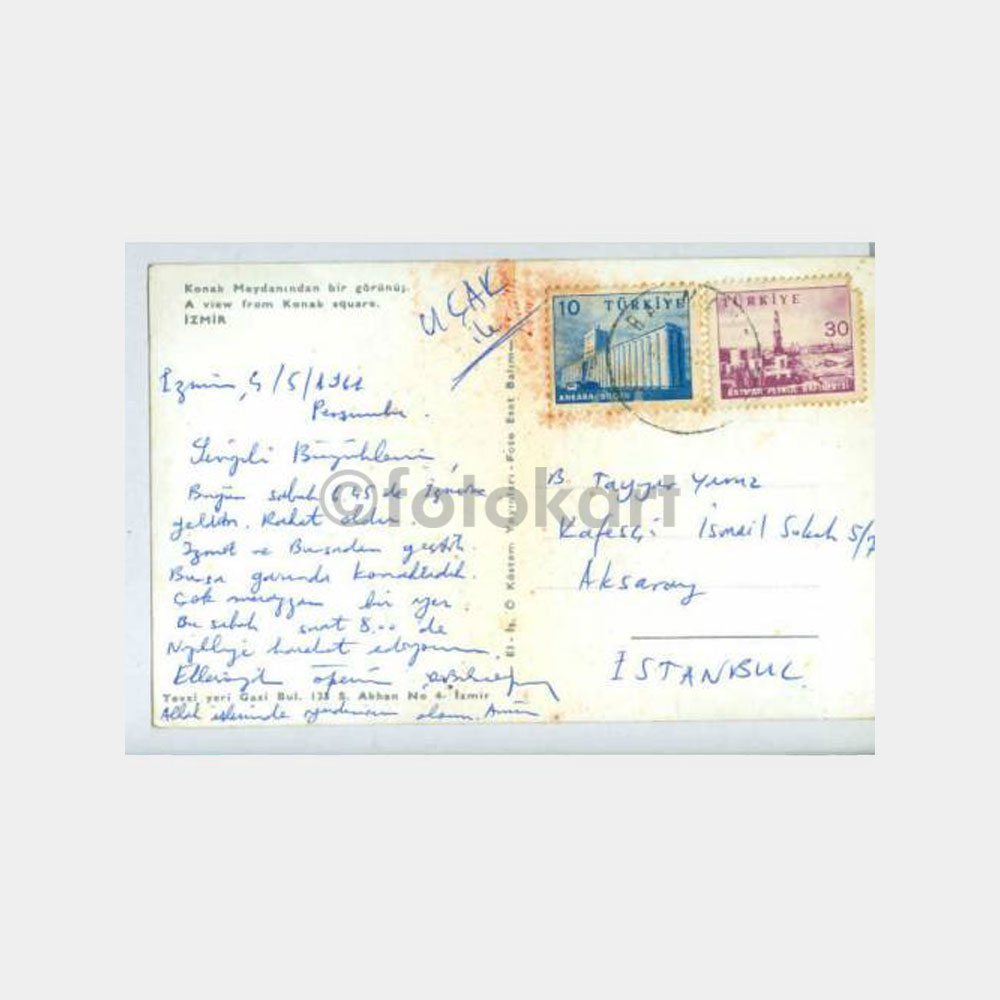 Konak Meydanından bir görünüş.
A view from Konak square.
İZMİR
UÇAK
ile
10 TÜRKİYE
ANKARA
TÜRKİYE
30
BATMAN PETROL RAFİNERİSİ
İzmir, 4/5/1961
Perşembe.
Sevgili Büyüklerim,
Bugün sabah 6.45 de İzmire
geldim. Rahat oldu.
İzmit ve Bursadan geçtik.
Bursa garında konakladık.
Çok muazzam bir yer.
Bu sabah saat 8.00 de
hareket ediyorum.
Ellerinizden öperim
Tevzi yeri Gazi Bul. 135 S. Akhan No 4. İzmir
Allah işlerinde yardımcın olsun. Amin
El-İş. O Küstem Yayınları-Foto Esat Balım
B. Tayyar
Kafesçi İsmail Sokak 5/7
Aksaray
İSTANBUL
©fotokart